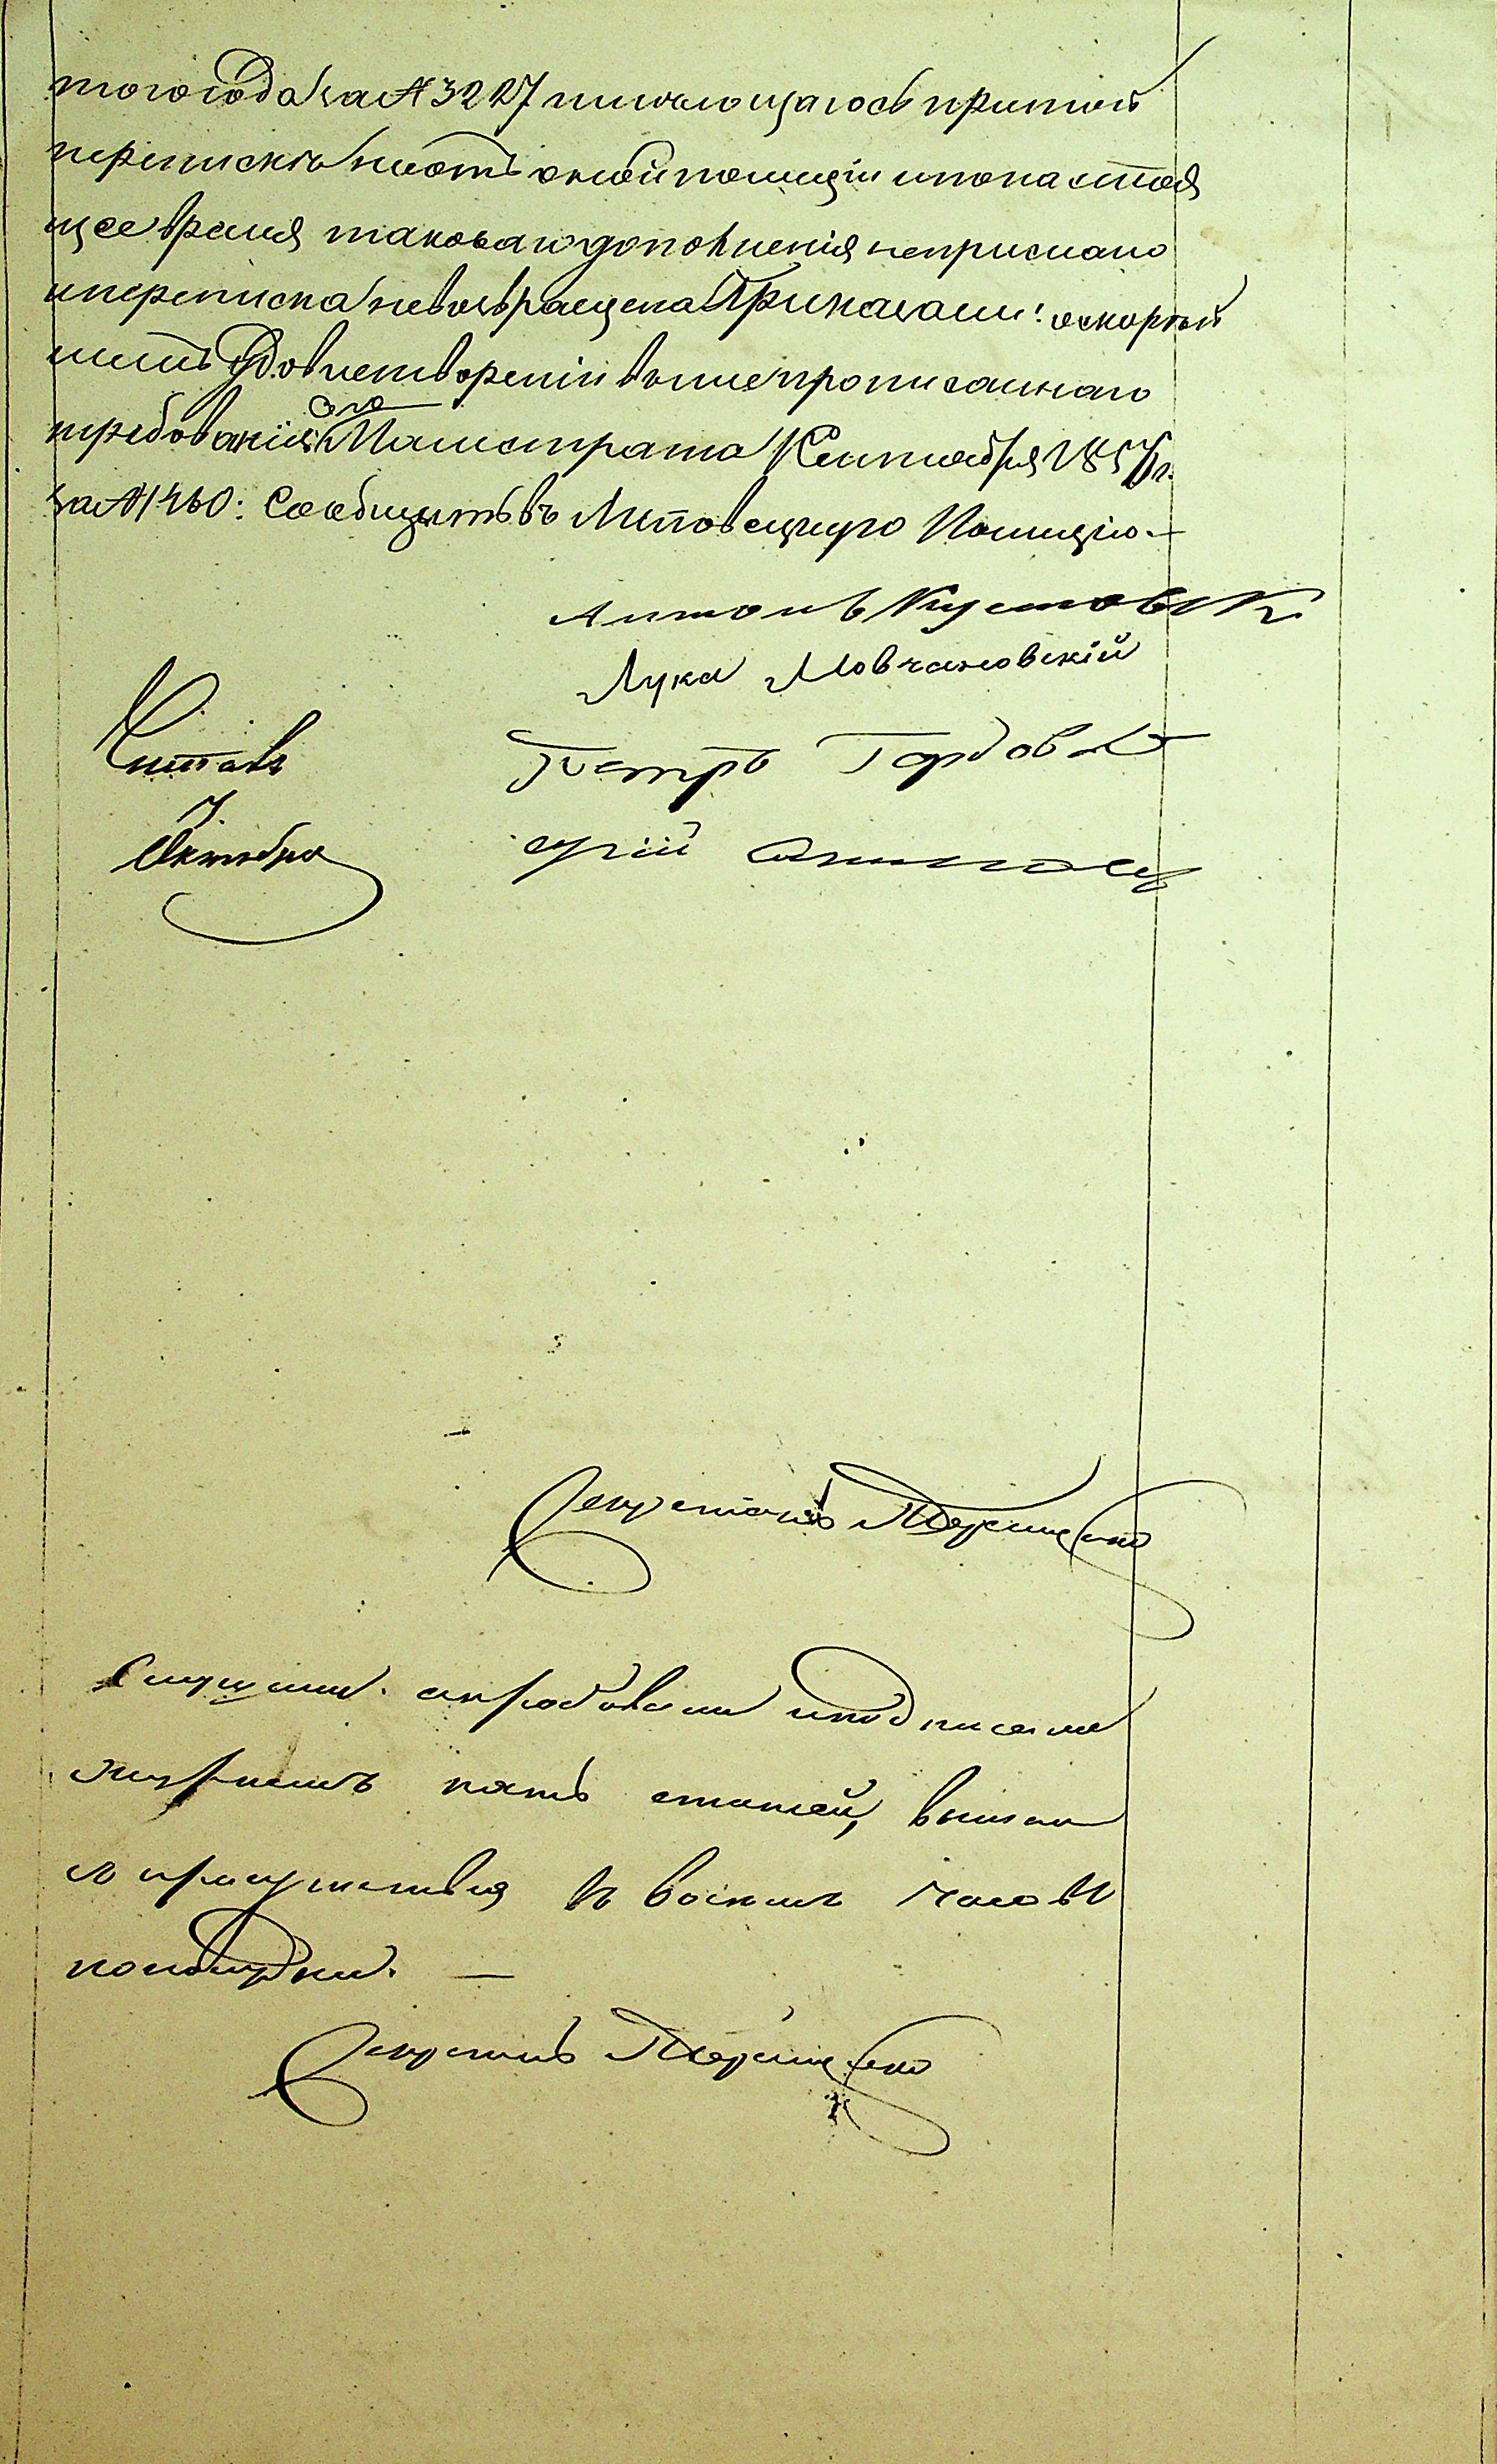 того года за № 3227 имеющагося при той
перепискѣ но отъ оной полиціи и по настоя
щее время таковаго дополненія неприслано
и переписка невозвращена Приказали: о скорей
шемъ удовлетвореніи вышепрописаннаго
требованія сего Магистрата Сентября 1857 г.
за № 1460: Сообщить въ Липовецкую Полицію. —
Антонъ
Лука Мовчановскій
Читалъ Петръ
7
Октября
Секретарь Терещенко
Слушали. и подписали
пять статей, вышли
изъ присутствія въ часовъ
пополудни. —
Секретарь Терещенко